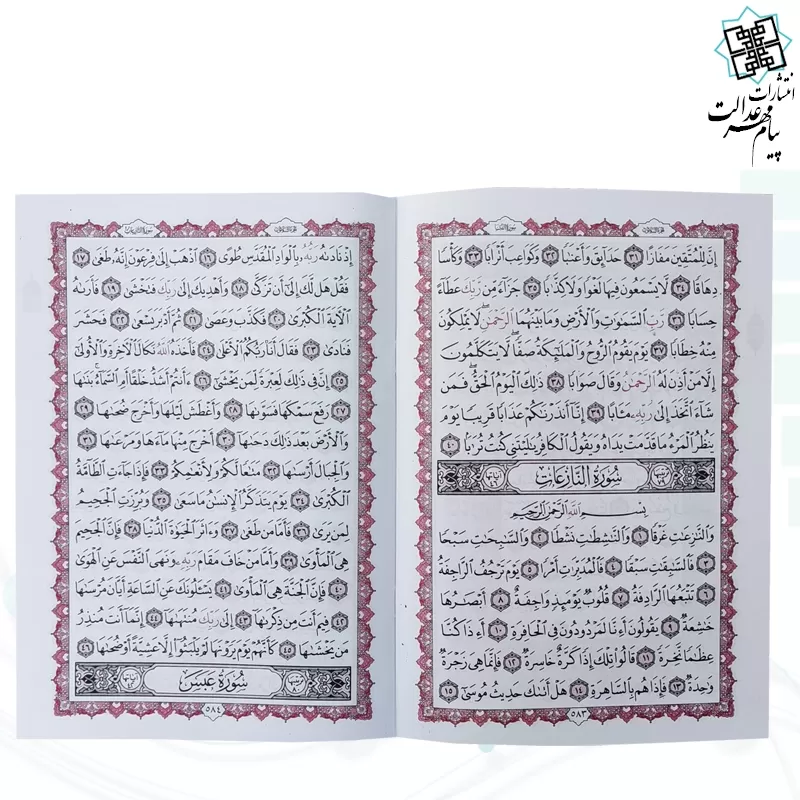 انتشارات
پیام مهر عدالت
إِنَّ لِلْمُتَّقِينَ مَفَازًا ٣١ حَدَآئِقَ وَأَعْنَٰبًا ٣٢ وَكَوَاعِبَ أَتْرَابًا ٣٣ وَكَأْسًا
دِهَاقًا ٣٤ لَّا يَسْمَعُونَ فِيهَا لَغْوًا وَلَا كِذَّٰبًا ٣٥ جَزَآءً مِّن رَّبِّكَ عَطَآءً
حِسَابًا ٣٦ رَّبِّ السَّمَٰوَٰتِ وَالْأَرْضِ وَمَا بَيْنَهُمَا الرَّحْمَٰنِ لَا يَمْلِكُونَ
مِنْهُ خِطَابًا ٣٧ يَوْمَ يَقُومُ الرُّوحُ وَالْمَلَٰٓئِكَةُ صَفًّا لَّا يَتَكَلَّمُونَ
إِلَّا مَنْ أَذِنَ لَهُ الرَّحْمَٰنُ وَقَالَ صَوَابًا ٣٨ ذَٰلِكَ الْيَوْمُ الْحَقُّ فَمَن
شَآءَ اتَّخَذَ إِلَىٰ رَبِّهِ مَـَٔابًا ٣٩ إِنَّآ أَنذَرْنَٰكُمْ عَذَابًا قَرِيبًا يَوْمَ
يَنظُرُ الْمَرْءُ مَا قَدَّمَتْ يَدَاهُ وَيَقُولُ الْكَافِرُ يَٰلَيْتَنِي كُنتُ تُرَٰبًا ٤٠
سُورَةُ النَّازِعَات
بِسْمِ اللَّهِ الرَّحْمَٰنِ الرَّحِيمِ
وَالنَّٰزِعَٰتِ غَرْقًا ١ وَالنَّٰشِطَٰتِ نَشْطًا ٢ وَالسَّٰبِحَٰتِ سَبْحًا
٣ فَالسَّٰبِقَٰتِ سَبْقًا ٤ فَالْمُدَبِّرَٰتِ أَمْرًا ٥ يَوْمَ تَرْجُفُ الرَّاجِفَةُ
٦ تَتْبَعُهَا الرَّادِفَةُ ٧ قُلُوبٌ يَوْمَئِذٍ وَاجِفَةٌ ٨ أَبْصَٰرُهَا
خَٰشِعَةٌ ٩ يَقُولُونَ أَءِنَّا لَمَرْدُودُونَ فِي الْحَافِرَةِ ١٠ أَءِذَا كُنَّا
عِظَٰمًا نَّخِرَةً ١١ قَالُوا تِلْكَ إِذًا كَرَّةٌ خَاسِرَةٌ ١٢ فَإِنَّمَا هِيَ زَجْرَةٌ
وَٰحِدَةٌ ١٣ فَإِذَا هُم بِالسَّاهِرَةِ ١٤ هَلْ أَتَىٰكَ حَدِيثُ مُوسَىٰٓ ١٥
٥٨٣
إِذْ نَادَىٰهُ رَبُّهُ بِالْوَادِ الْمُقَدَّسِ طُوًى ١٦ اذْهَبْ إِلَىٰ فِرْعَوْنَ إِنَّهُ طَغَىٰ ١٧
فَقُلْ هَل لَّكَ إِلَىٰٓ أَن تَزَكَّىٰ ١٨ وَأَهْدِيَكَ إِلَىٰ رَبِّكَ فَتَخْشَىٰ ١٩ فَأَرَىٰهُ
الْآيَةَ الْكُبْرَىٰ ٢٠ فَكَذَّبَ وَعَصَىٰ ٢١ ثُمَّ أَدْبَرَ يَسْعَىٰ ٢٢ فَحَشَرَ
فَنَادَىٰ ٢٣ فَقَالَ أَنَا رَبُّكُمُ الْأَعْلَىٰ ٢٤ فَأَخَذَهُ اللَّهُ نَكَالَ الْآخِرَةِ وَالْأُولَىٰٓ
٢٥ إِنَّ فِي ذَٰلِكَ لَعِبْرَةً لِّمَن يَخْشَىٰٓ ٢٦ ءَأَنتُمْ أَشَدُّ خَلْقًا أَمِ السَّمَآءُ بَنَىٰهَا
٢٧ رَفَعَ سَمْكَهَا فَسَوَّىٰهَا ٢٨ وَأَغْطَشَ لَيْلَهَا وَأَخْرَجَ ضُحَىٰهَا ٢٩
وَالْأَرْضَ بَعْدَ ذَٰلِكَ دَحَىٰهَآ ٣٠ أَخْرَجَ مِنْهَا مَآءَهَا وَمَرْعَىٰهَا ٣١
وَالْجِبَالَ أَرْسَىٰهَا ٣٢ مَتَٰعًا لَّكُمْ وَلِأَنْعَٰمِكُمْ ٣٣ فَإِذَا جَآءَتِ الطَّآمَّةُ
الْكُبْرَىٰ ٣٤ يَوْمَ يَتَذَكَّرُ الْإِنسَٰنُ مَا سَعَىٰ ٣٥ وَبُرِّزَتِ الْجَحِيمُ
لِمَن يَرَىٰ ٣٦ فَأَمَّا مَن طَغَىٰ ٣٧ وَءَاثَرَ الْحَيَوٰةَ الدُّنْيَا ٣٨ فَإِنَّ الْجَحِيمَ
هِيَ الْمَأْوَىٰ ٣٩ وَأَمَّا مَنْ خَافَ مَقَامَ رَبِّهِ وَنَهَى النَّفْسَ عَنِ الْهَوَىٰ
٤٠ فَإِنَّ الْجَنَّةَ هِيَ الْمَأْوَىٰ ٤١ يَسْـَٔلُونَكَ عَنِ السَّاعَةِ أَيَّانَ مُرْسَىٰهَا
٤٢ فِيمَ أَنتَ مِن ذِكْرَىٰهَآ ٤٣ إِلَىٰ رَبِّكَ مُنتَهَىٰهَآ ٤٤ إِنَّمَآ أَنتَ مُنذِرُ
مَن يَخْشَىٰهَا ٤٥ كَأَنَّهُمْ يَوْمَ يَرَوْنَهَا لَمْ يَلْبَثُوٓا إِلَّا عَشِيَّةً أَوْ ضُحَىٰهَا ٤٦
سُورَةُ عَبَسَ
٥٨٤